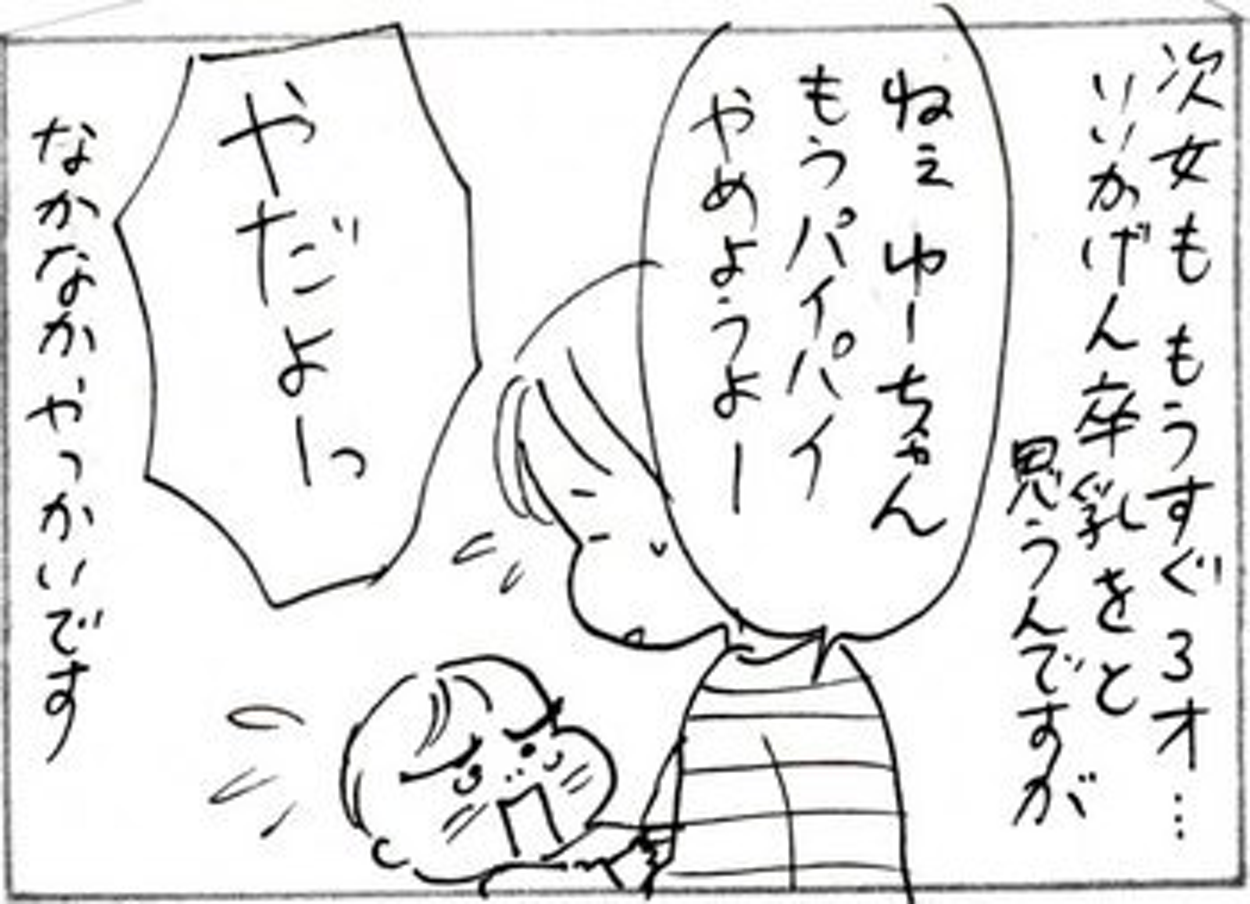 次女も もうすぐ3才…
いいかげん卒乳をと
思うんですが
ねぇ ゆーちゃん
もうパイパイ
やめようよー
やだよーっ
なかなかやっかいです